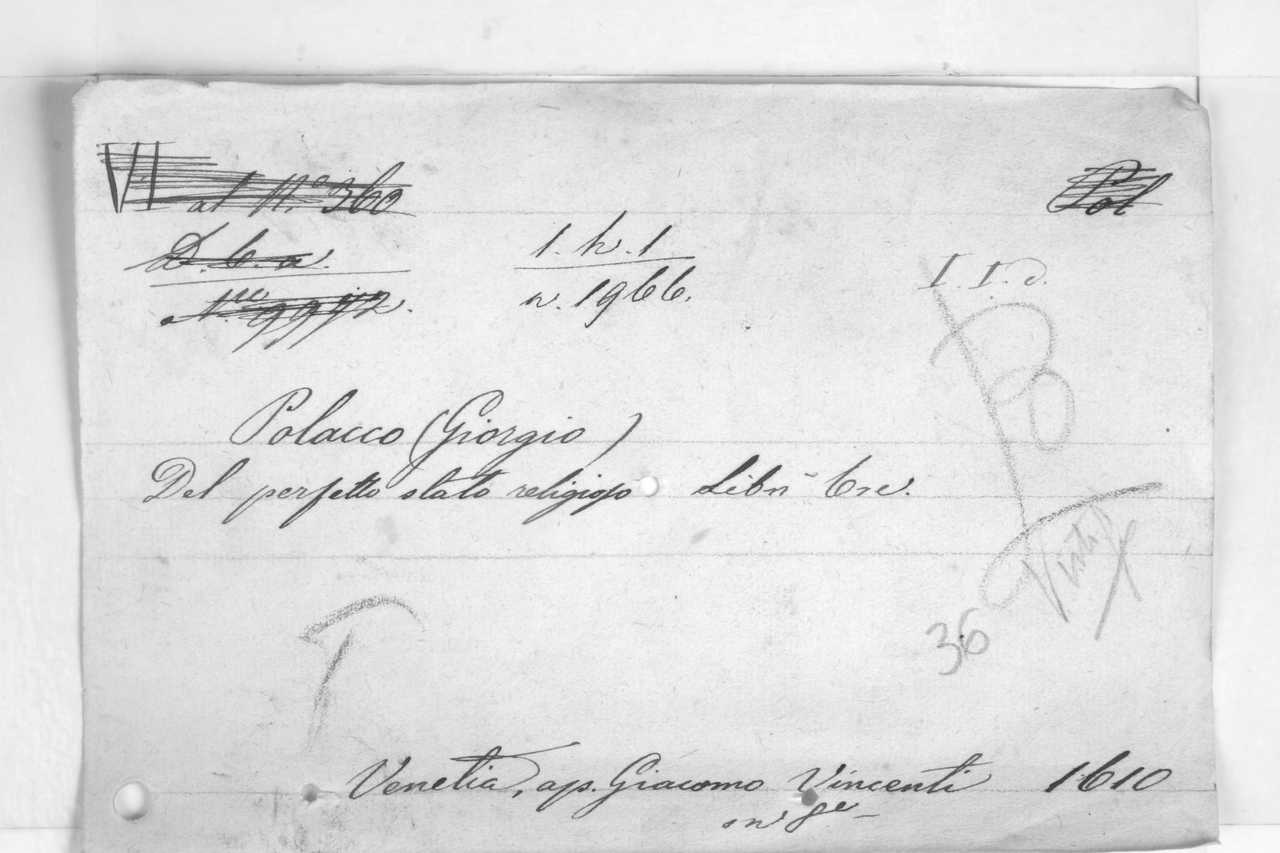 VI al N.º 360
Pol
D. b. a.
1. h. 1
I. I. d.
n. 1966.
Polacco (Giorgio)
Del perfetto stato religioso Libri tre.
36
Venetia, ap. Giacomo Vincenti 1610